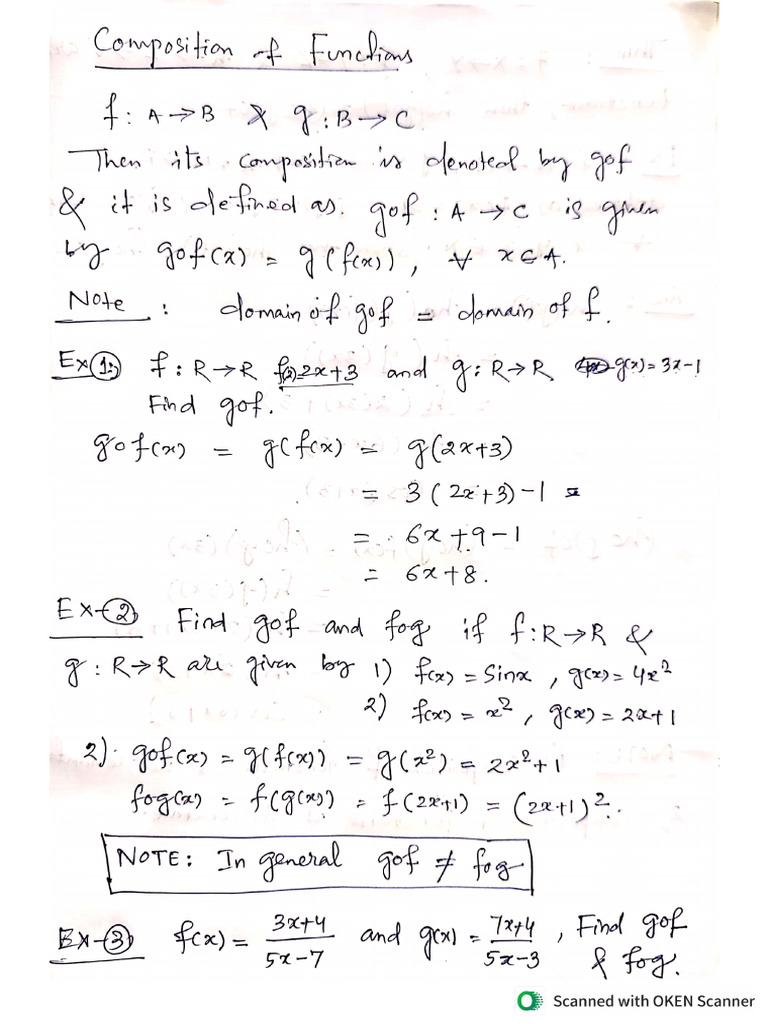 Composition of Functions
f : A → B & g : B → C
Then its composition is denoted by gof
& it is defined as gof : A → C is given
by gof(x) = g(f(x)), ∀ x ∈ A.
Note : domain of gof = domain of f.
Ex ①: f : R → R f(x)=2x+3 and g : R → R g(x) = 3x-1
Find gof.
gof(x) = g(f(x) = g(2x+3)
= 3(2x+3)-1 =
= 6x+9-1
= 6x+8.
Ex-② Find gof and fog if f: R→R &
g : R→R are given by 1) f(x) = Sinx , g(x) = 4x²
2) f(x) = x² , g(x) = 2x+1
2). gof(x) = g(f(x)) = g(x²) = 2x²+1
fog(x) = f(g(x)) = f(2x+1) = (2x+1)².
NOTE: In general gof ≠ fog
Ex-③ f(x) = (3x+4)/(5x-7) and g(x) = (7x+4)/(5x-3) , Find gof
& fog.
Scanned with OKEN Scanner